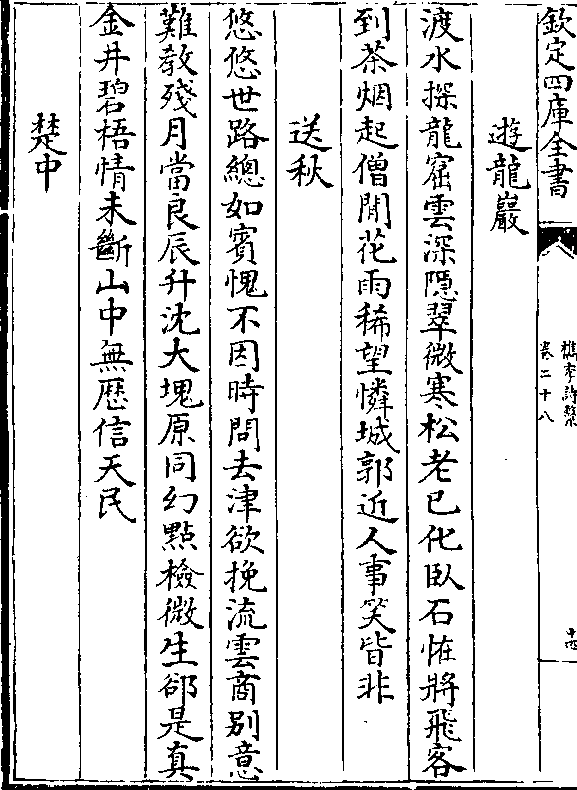 欽定四庫全書
檇李詩繫
卷二十八
十四
遊龍巖
渡水探龍窟雲深隱翠微寒松老已化臥石恠將飛客
到茶烟起僧閒花雨稀望憐城郭近人事笑皆非
送秋
悠悠世路總如賓愧不因時問去津欲挽流雲商别意
難教殘月當良辰升沈大塊原同幻點檢微生郤是真
金井碧梧情未斷山中無歴信天民
楚中